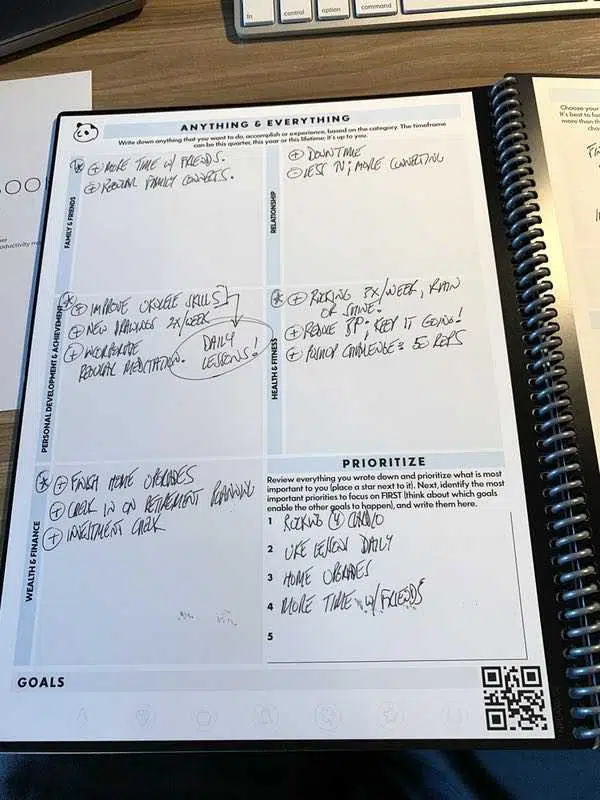 fn
control
option
command
ANYTHING & EVERYTHING
Write down anything that you want to do, accomplish or experience, based on the category. The timeframe
can be this quarter, this year or this lifetime; it's up to you.
FAMILY & FRIENDS
MORE TIME W/ FRIENDS.
REGULAR FAMILY CONVOS.
RELATIONSHIP
DOWNTIME
LESS TV; MORE CONNECTING
PERSONAL DEVELOPMENT & ACHIEVEMENT
IMPROVE UKULELE SKILLS
NEW DRAWINGS 2X/WEEK
INCORPORATE
REGULAR MEDITATION.
DAILY
LESSONS!
HEALTH & FITNESS
RUCKING 3X/WEEK, RAIN
OR SHINE.
REDUCE BP: KEEP IT GOING!
CHALLENGE: 50 REPS
WEALTH & FINANCE
FINISH HOME UPGRADES
CHECK IN ON RETIREMENT PLANNING
INVESTMENT CHECK
PRIORITIZE
Review everything you wrote down and prioritize what is most
important to you (place a star next to it). Next, identify the most
important priorities to focus on FIRST (think about which goals
enable the other goals to happen), and write them here.
1 RUCKING CARDIO
2 UKE LESSON DAILY
3 HOME UPGRADES
4 MORE TIME W/ FRIENDS
5
GOALS
Choose your
It's best to fo
more than th